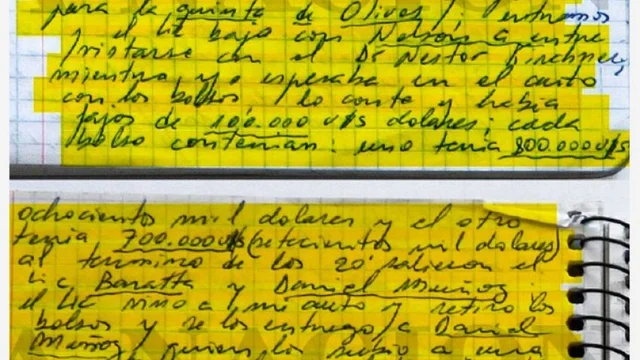 para la quinta de Olivos/: entramos
y el Lic bajo con Nelson a entre
/vistarse con el Dr Nestor Kirchner,
mientra, yo esperaba en el auto
con los bolsos, / lo conte y habia
fajos de 100.000 u/s dolares; cada
/bolso contenian: uno tenia 800.000 u/s
ochocientos mil dolares y el otro
tenia 700.000 u/s (setecientos mil dolares)
al termino de los 20' salieron el
Lic Baratta y Daniel Muñoz
el Lic vino a mi auto y retiro los
bolsos y se los entrego/a Daniel
Muñoz/quien los subio a una